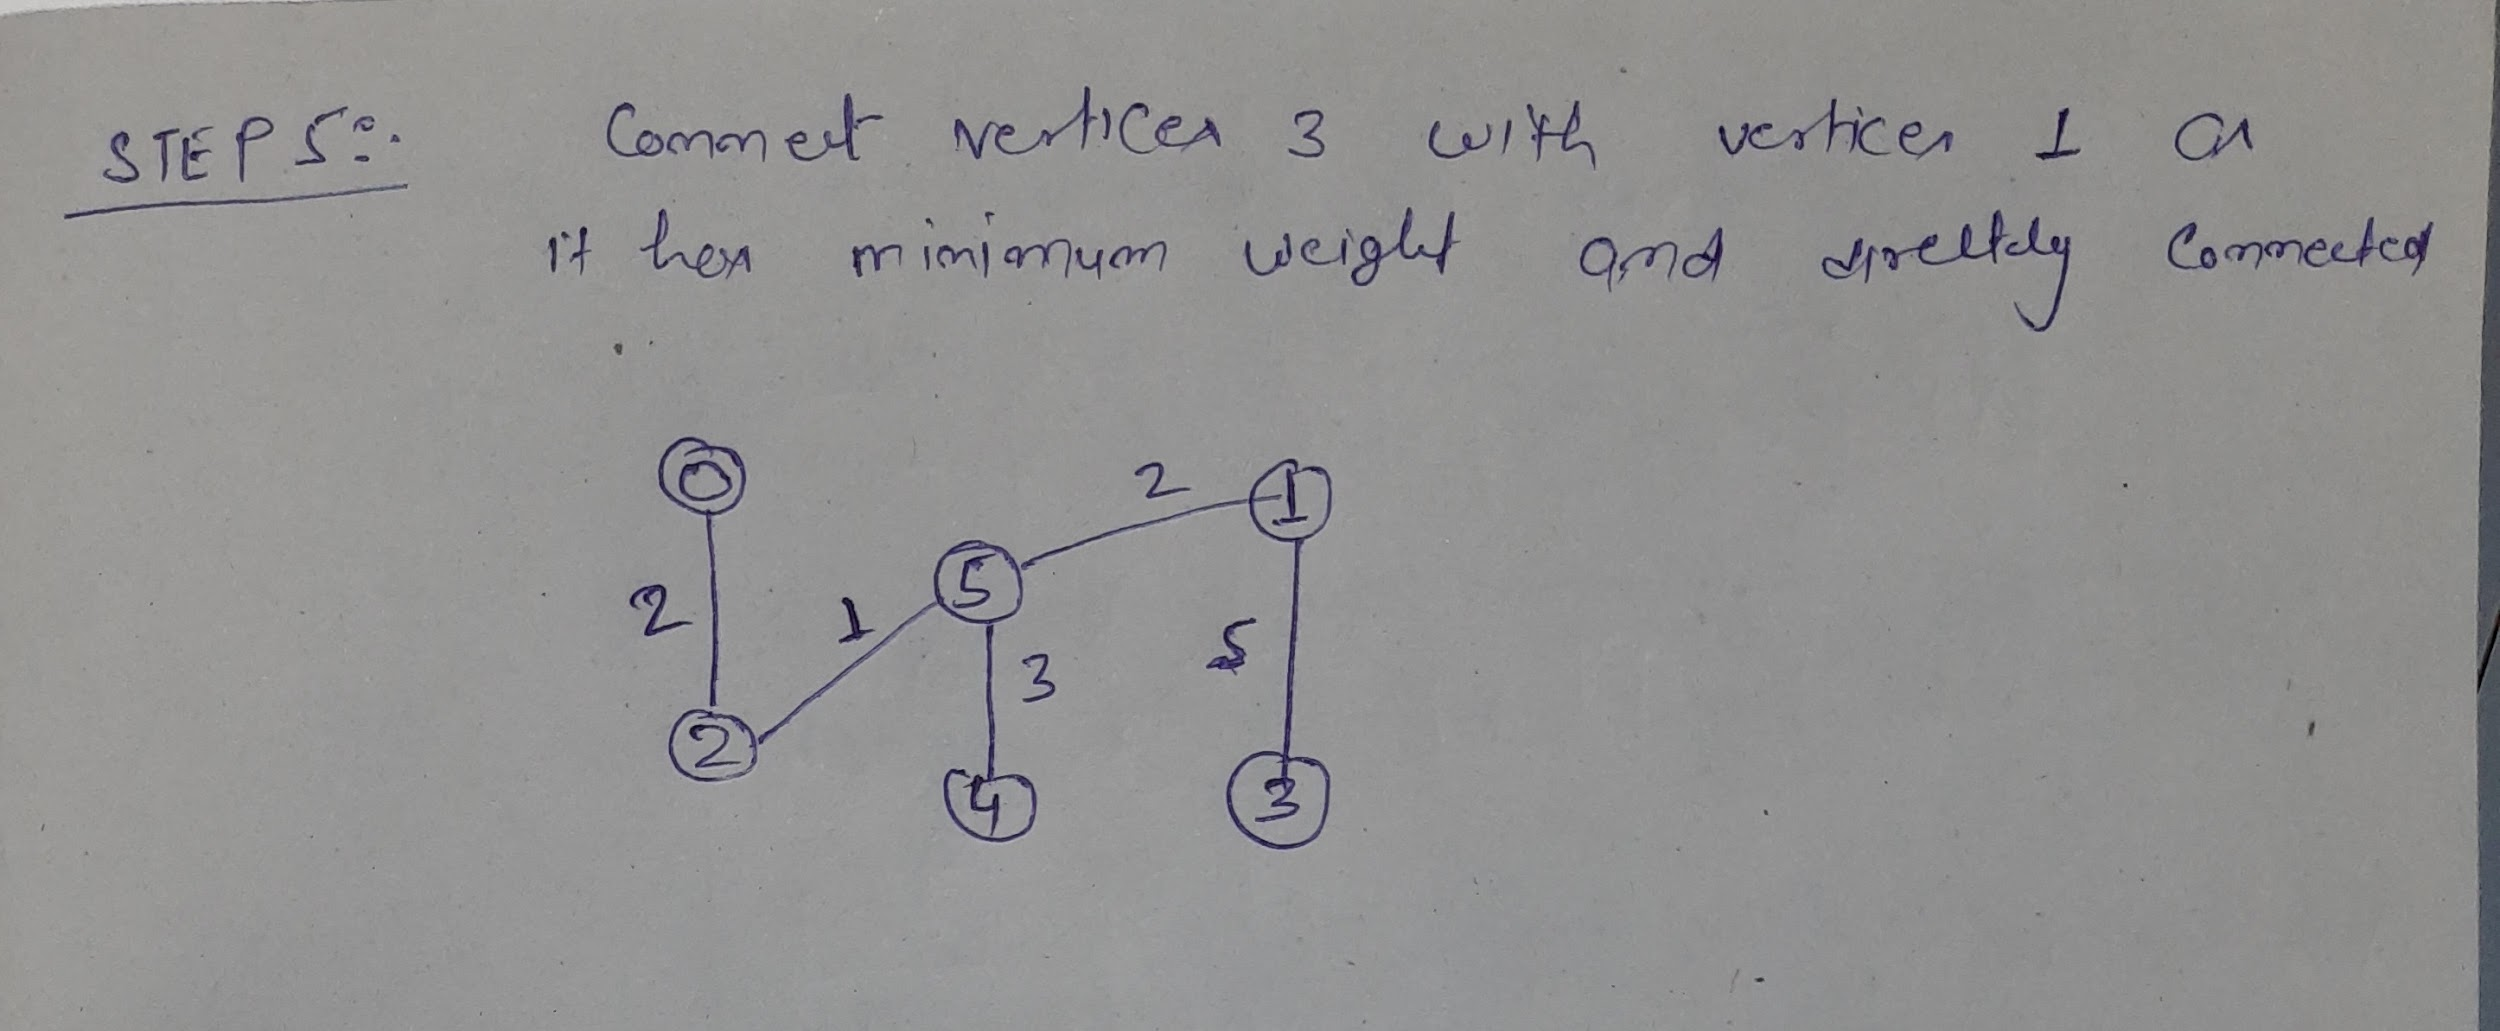 STEP 5:- Connect vertices 3 with vertices 1 as
it has minimum weight and direltdy Connected
0
2
1
5
2
1
2
3
5
4
3